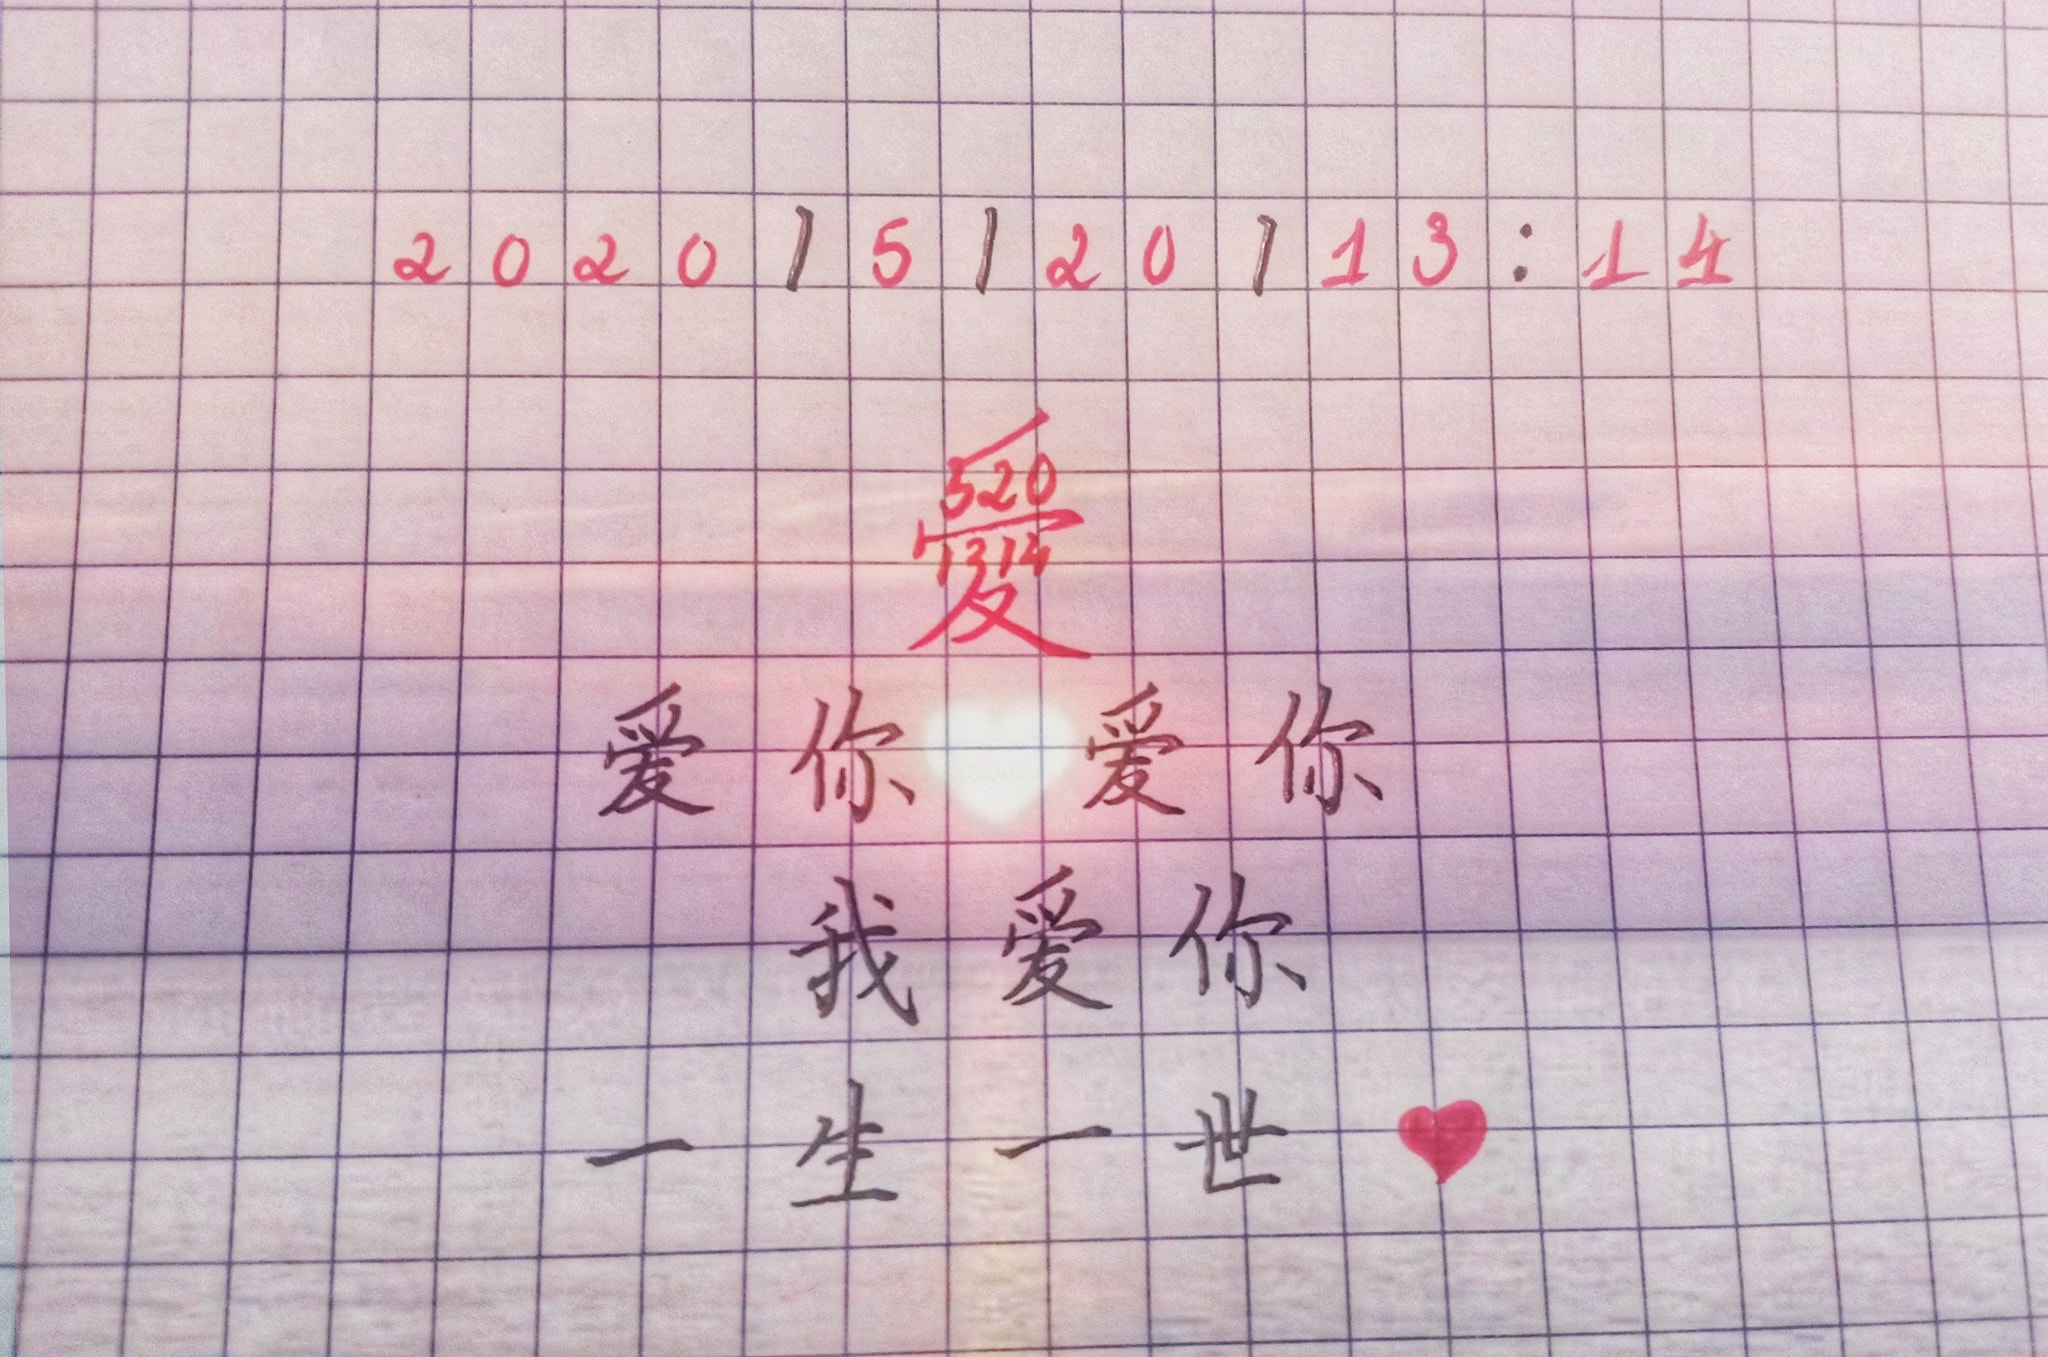 2020/5/20/13:14
愛
520
1314
爱你爱你
我爱你
一生一世